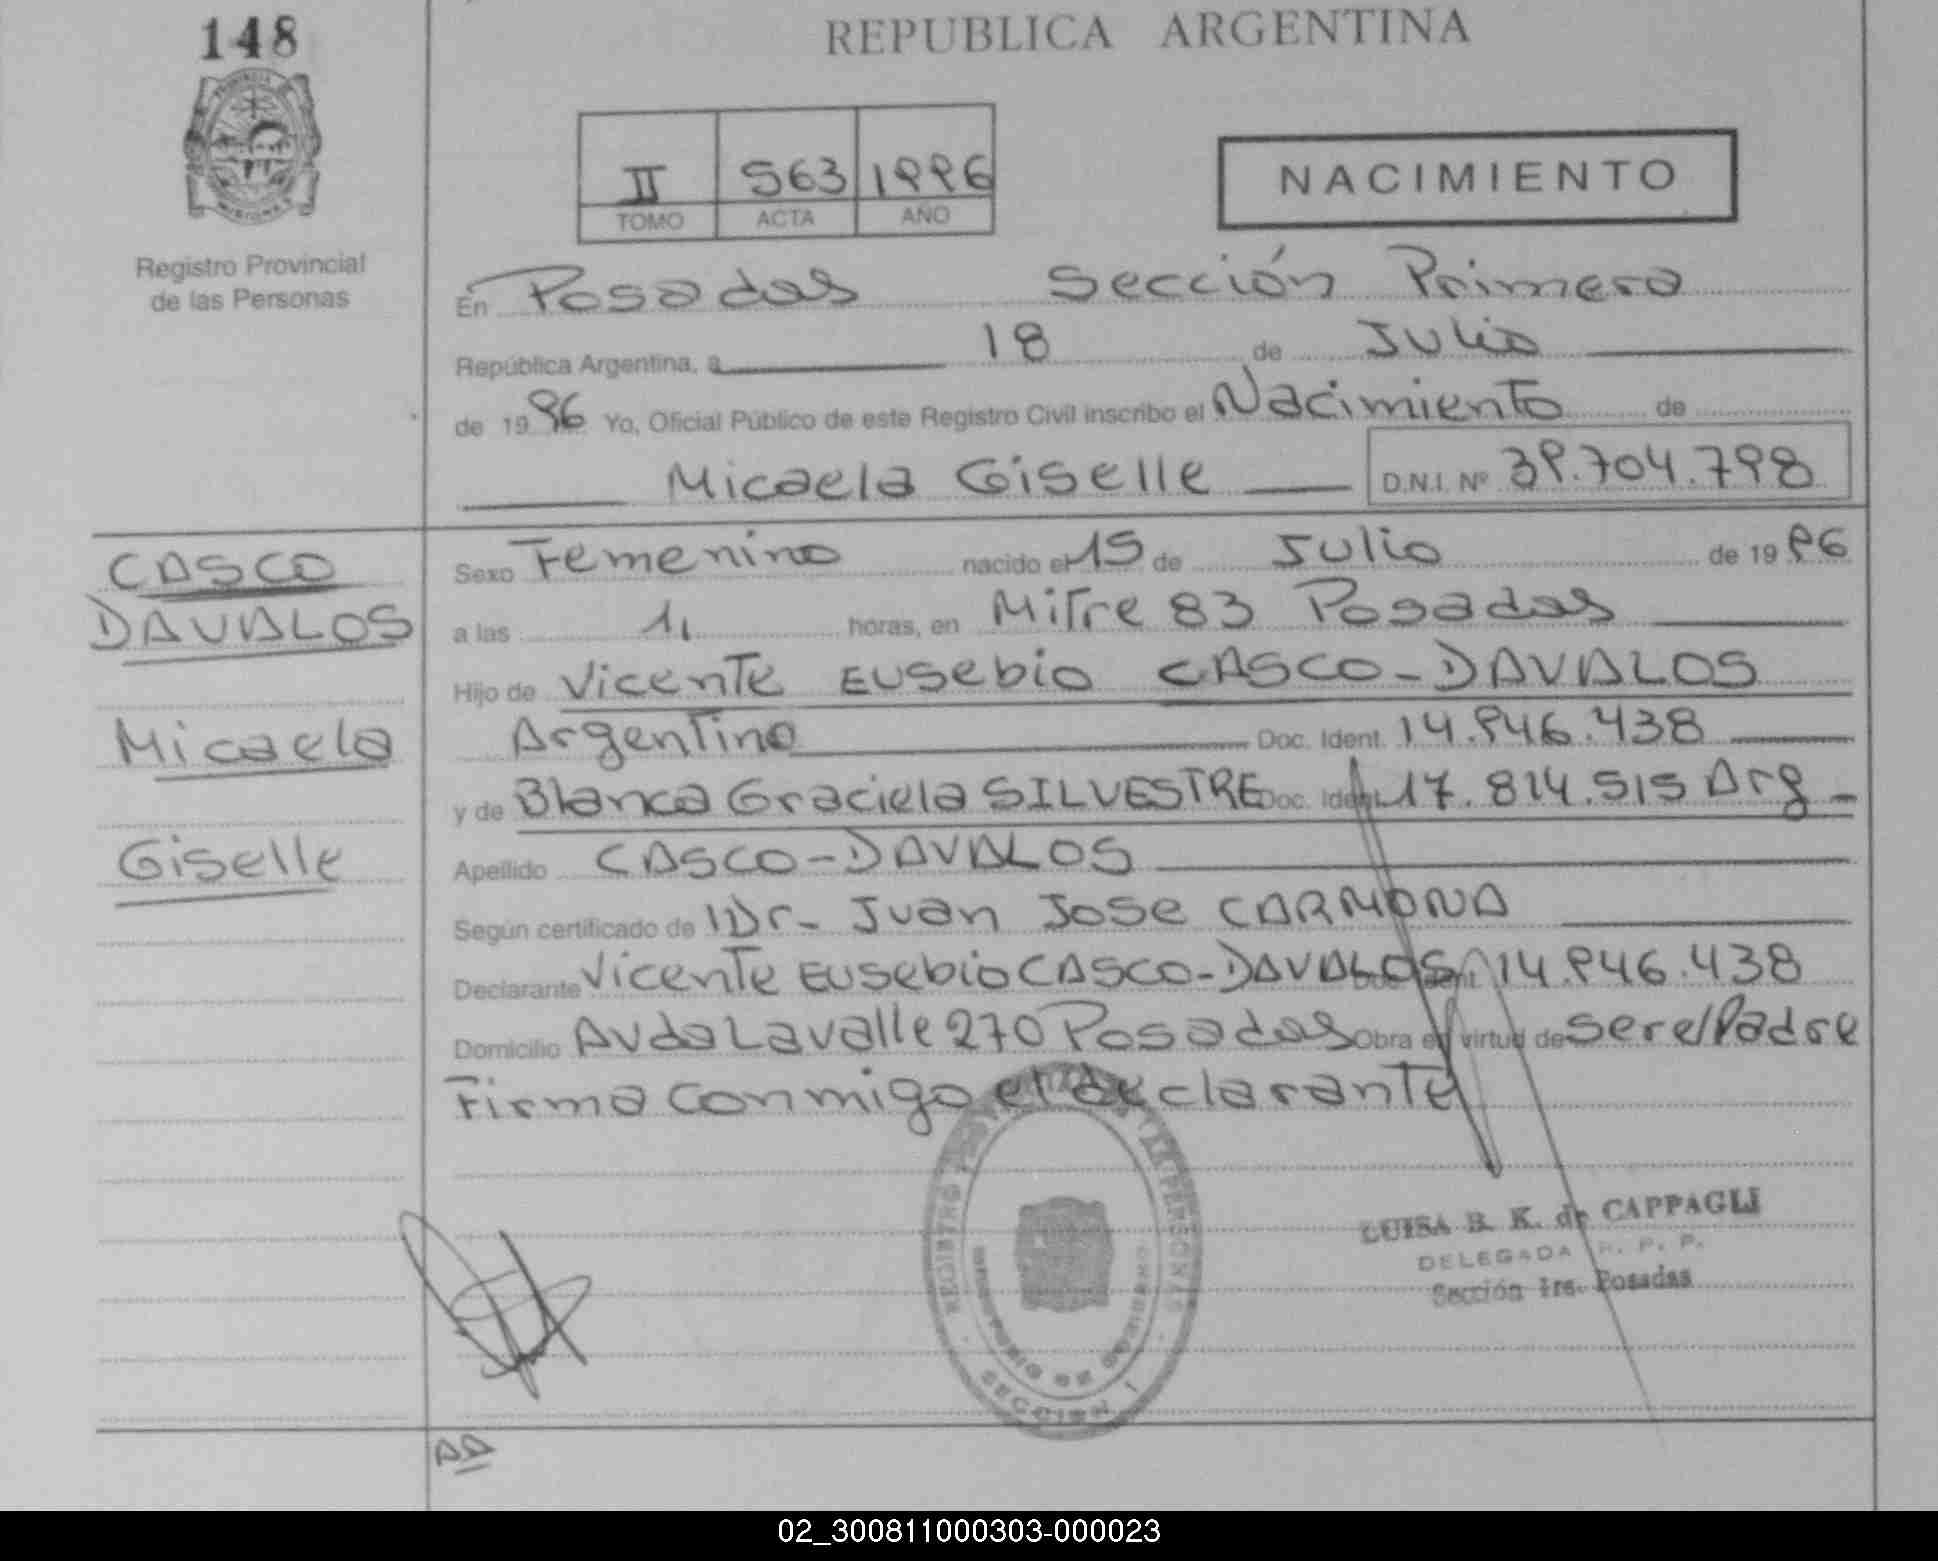 148
REPUBLICA ARGENTINA
II 563 1996
TOMO ACTA AÑO
NACIMIENTO
Registro Provincial
de las Personas
En Posadas Sección Primera
República Argentina, a 18 de Julio
de 1996 Yo, Oficial Público de este Registro Civil inscribo el Nacimiento de
Micaela Giselle D.N.I. Nº 39.704.798
CASCO
DAVALOS
Micaela
Giselle
Sexo Femenino nacido el 15 de Julio de 1996
a las 1, horas, en Mitre 83 Posadas
Hijo de Vicente Eusebio CASCO-DAVALOS
Argentino Doc. Ident. 14.946.438
y de Blanca Graciela SILVESTRE Doc. Ident. 17.814.515 Arg
Apellido CASCO-DAVALOS
Según certificado de Dr- Juan Jose CARMONA
Declarante Vicente Eusebio CASCO-DAVALOS 14.946.438
Domicilio Avda Lavalle 270 Posadas Obra en virtud de ser el Padre
Firma conmigo el declarante
REGISTRO PERSONAS
SECCION 1
LUISA B. K. de CAPPAGLI
DELEGADA R. P. P.
Sección 1ra. Posadas
02_300811000303-000023